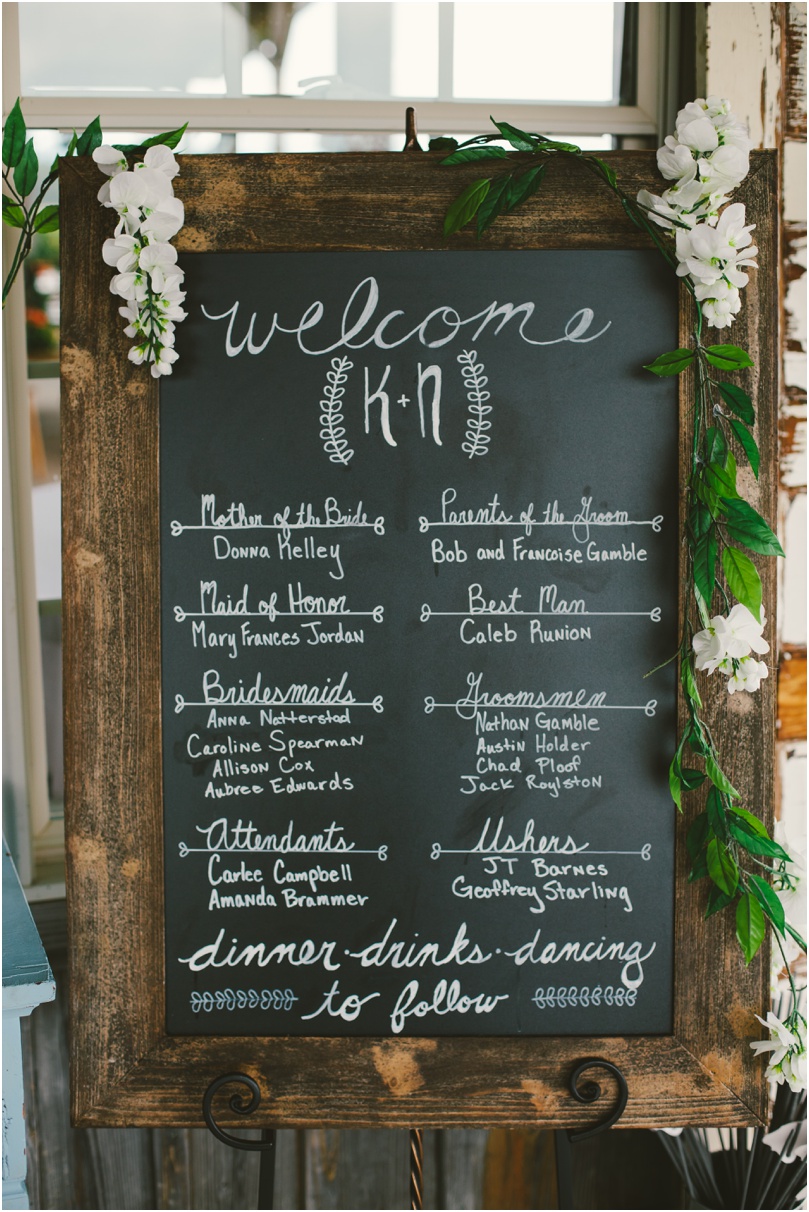 welcome
K+N
Mother of the Bride
Donna Kelley
Parents of the Groom
Bob and Francoise Gamble
Maid of Honor
Mary Frances Jordan
Best Man
Caleb Runion
Bridesmaids
Anna Natterstad
Caroline Spearman
Allison Cox
Aubree Edwards
Groomsmen
Nathan Gamble
Austin Holder
Chad Ploof
Jack Roylston
Attendants
Carlee Campbell
Amanda Brammer
Ushers
JT Barnes
Geoffrey Starling
dinner·drinks·dancing
to follow